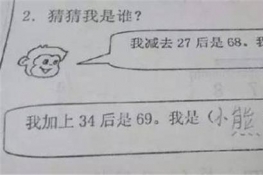 2. 猜猜我是谁?
我减去 27 后是 68。我
我加上 34 后是 69。我是(小熊